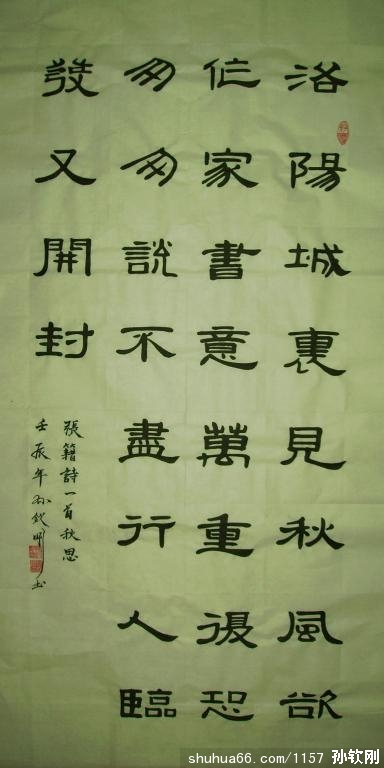 洛陽城裏見秋風欲
作家書意萬重復恐
匆匆說不盡行人臨
發又開封
張籍詩一首秋思
壬辰年孙钦刚书
shuhua66.com/1157 孙钦刚